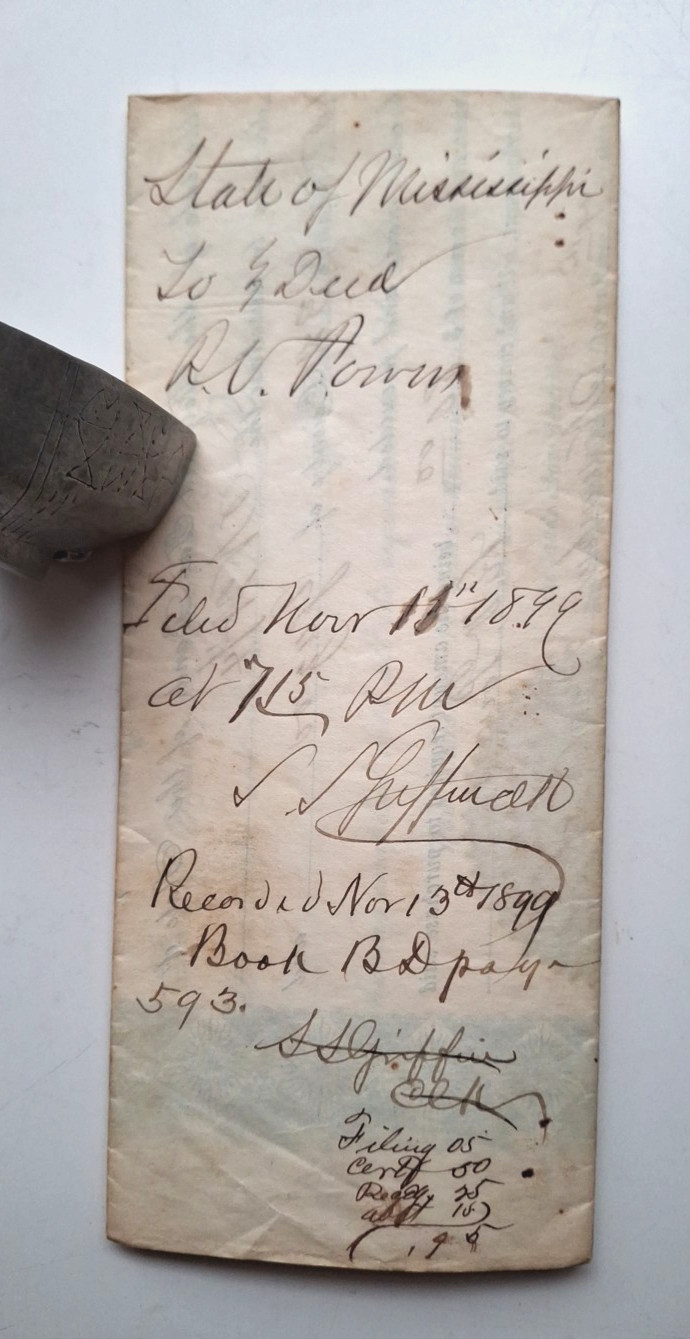 State of Mississippi
To } Deed
R.V. Powers
Filed Novr 11" 1899
at 715 PM
S S Griffin clk
Recorded Nov 13th 1899
Book B D page
593.
S S Griffin
Clk
Filing 05
Certf 50
Recdg 25
15
.95